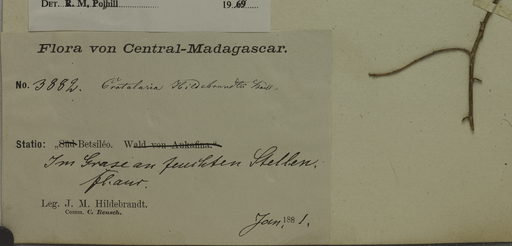 DET. R. M. Polhill 1969
Flora von Central-Madagascar.
No. 3882. Crotalaria Hildebrandtii Vatke
Statio: „Süd-Betsiléo. Wald von Ankafina.“
Im Grase an feuchten Stellen.
fl. aur.
Leg. J. M. Hildebrandt.
Comm. C. Rensch.
Jan. 1881.